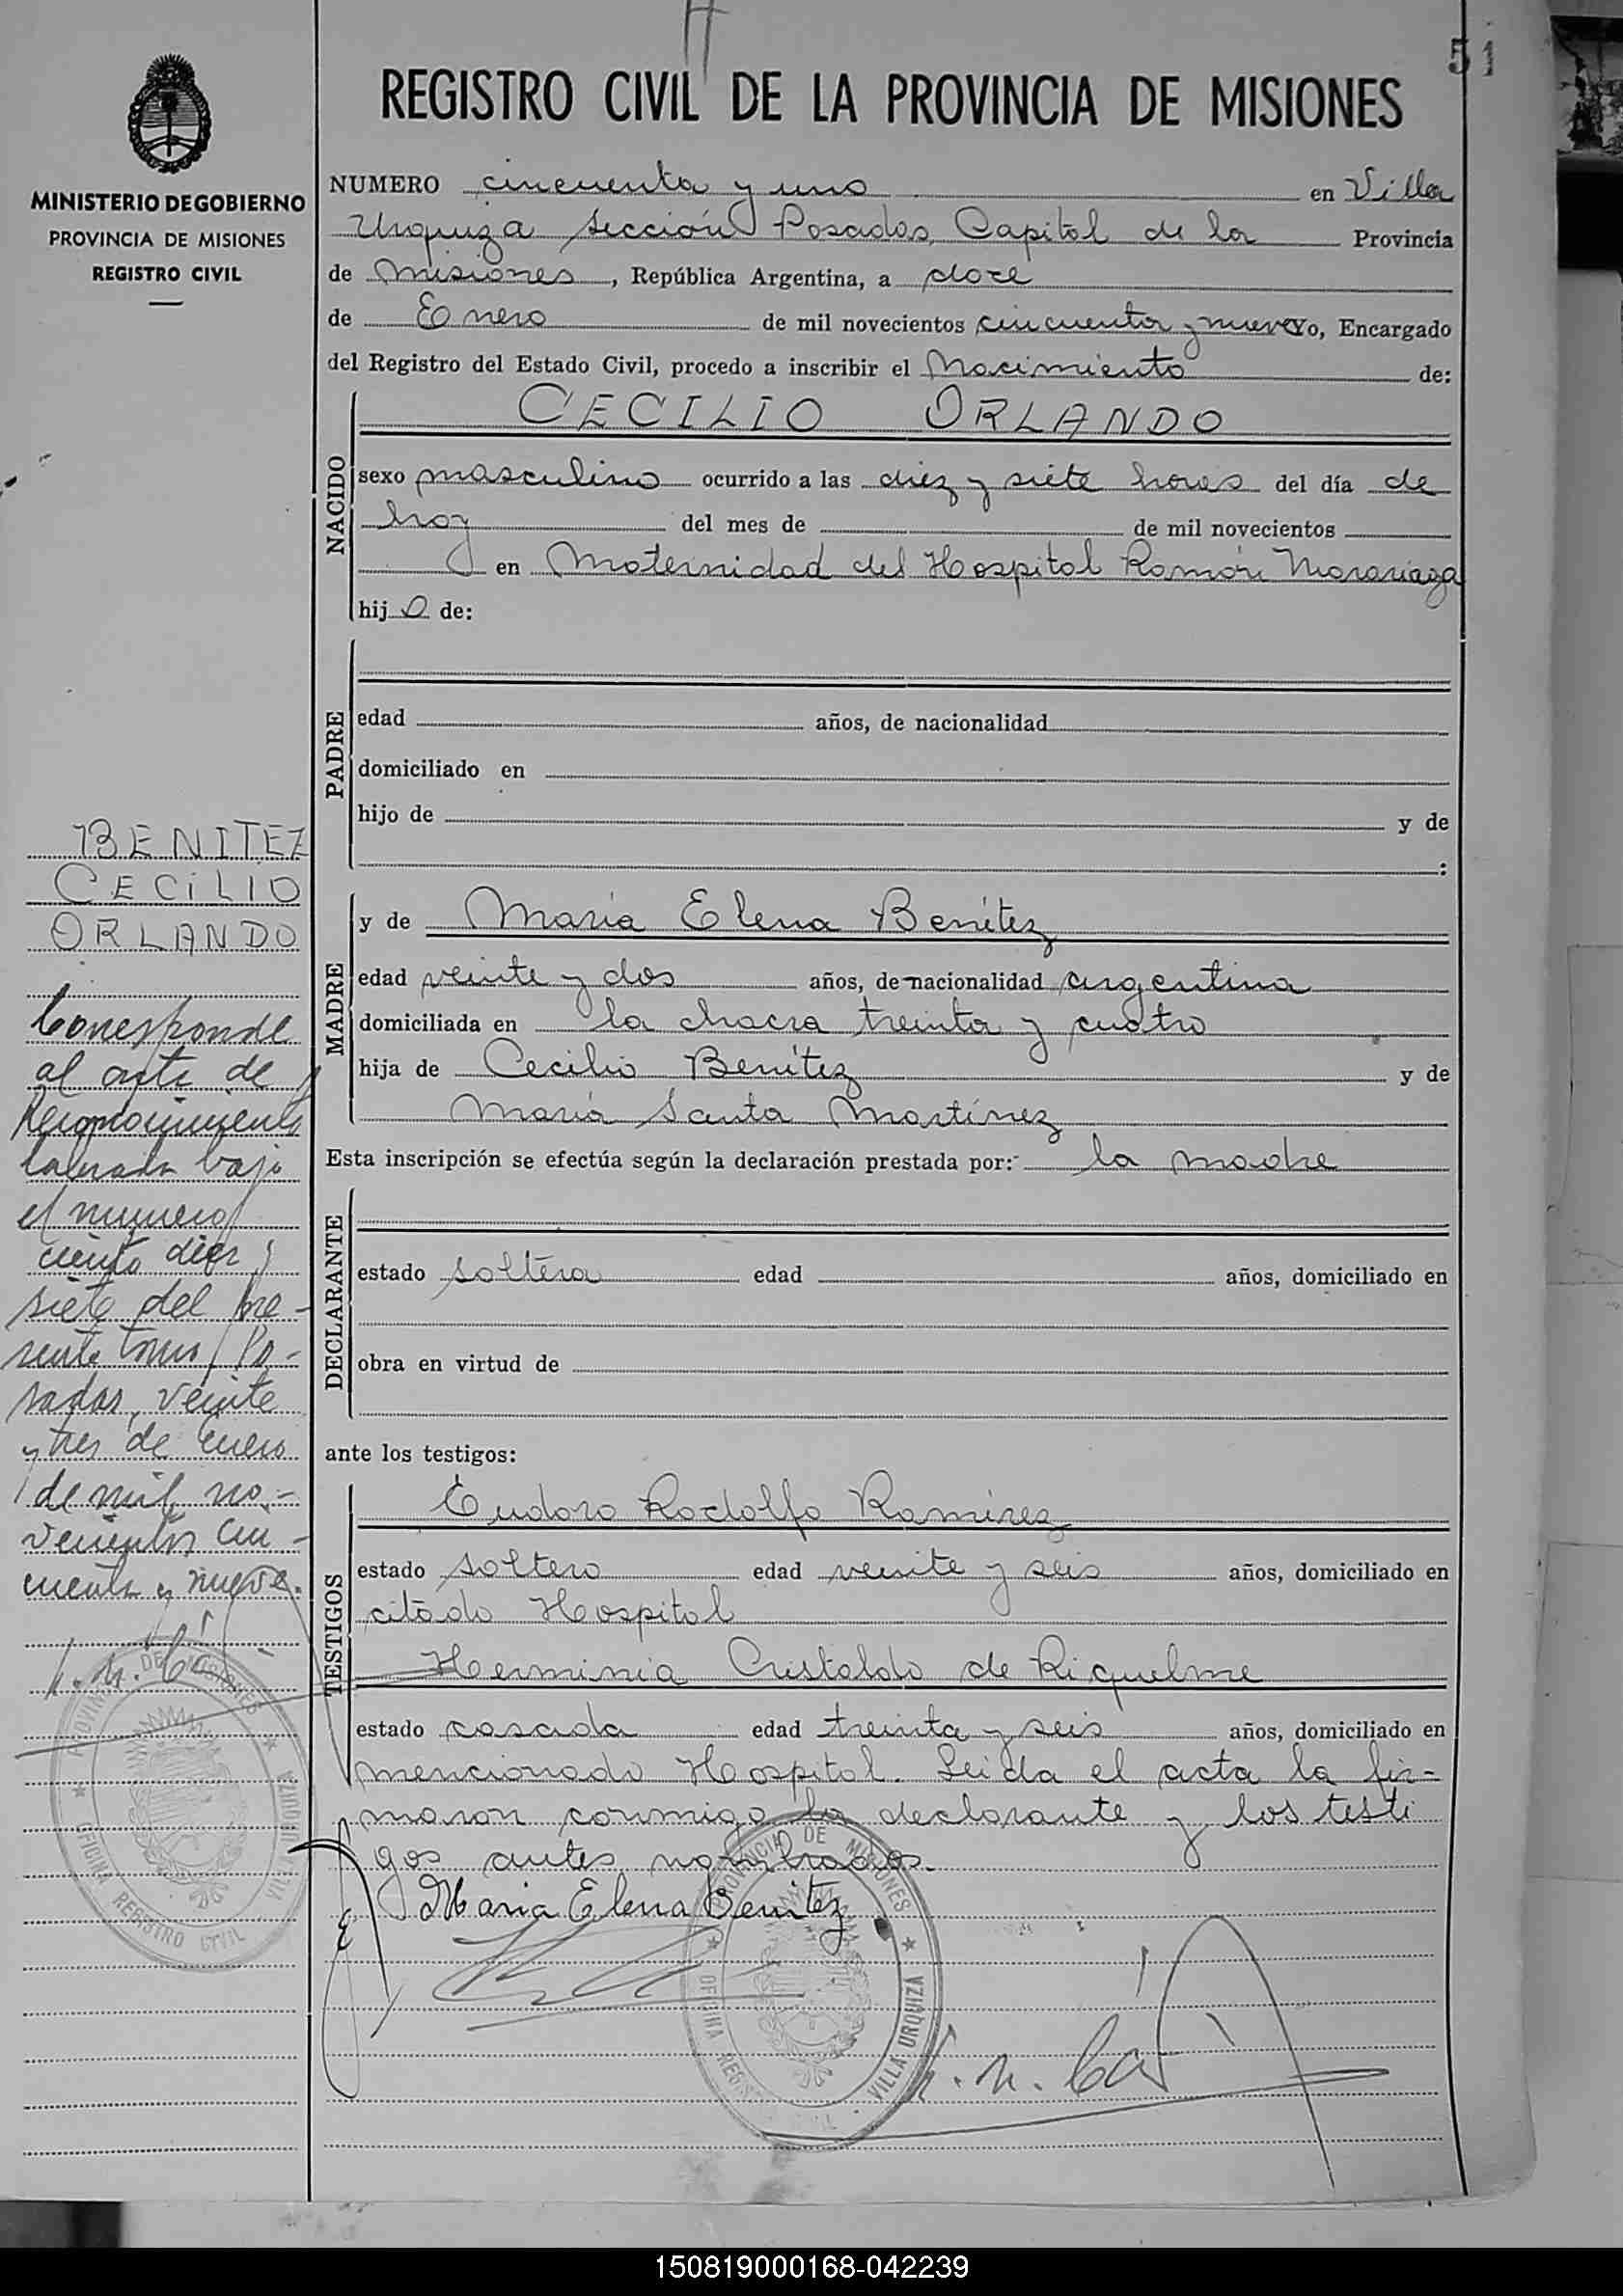 51
REGISTRO CIVIL DE LA PROVINCIA DE MISIONES
MINISTERIO DE GOBIERNO
PROVINCIA DE MISIONES
REGISTRO CIVIL
NUMERO cincuenta y uno en Villa
Urquiza sección Posadas, Capital de la Provincia
de Misiones, República Argentina, a doce
de Enero de mil novecientos cincuenta y nueve Yo, Encargado
del Registro del Estado Civil, procedo a inscribir el Nacimiento de:
CECILIO ORLANDO
NACIDO
sexo masculino ocurrido a las diez y siete horas del día de
hoy del mes de de mil novecientos
en Maternidad del Hospital Ramón Madariaga
hijo de:
PADRE
edad años, de nacionalidad
domiciliado en
hijo de y de
:
BENITEZ
CECILIO
ORLANDO
Corresponde
al acta de
Reconocimiento
labrada bajo
el numero
ciento diez y
siete del pre-
sente tomo, Po-
sadas, veinte
y tres de enero
de mil no-
vecientos cin-
cuenta y nueve.
MADRE
y de María Elena Benítez
edad veinte y dos años, de nacionalidad argentina
domiciliada en la chacra treinta y cuatro
hija de Cecilio Benítez y de
María Santa Martínez
Esta inscripción se efectúa según la declaración prestada por:- la madre
DECLARANTE
estado soltera edad años, domiciliado en
obra en virtud de
ante los testigos:
TESTIGOS
Eudoro Rodolfo Ramirez
estado soltero edad veinte y seis años, domiciliado en
citado Hospital
Herminia Cristaldo de Riquelme
estado casada edad treinta y seis años, domiciliado en
mencionado Hospital. Leida el acta la fir-
maron conmigo la declarante y los testi
gos antes nombrados.
Maria Elena Benitez
PROVINCIA DE MISIONES
OFICINA REGISTRO CIVIL
VILLA URQUIZA
PROVINCIA DE MISIONES
OFICINA REGISTRO CIVIL
VILLA URQUIZA
150819000168-042239